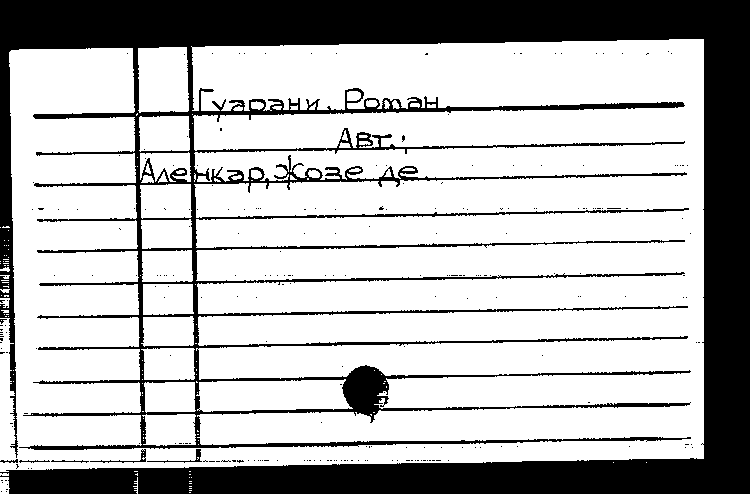 Гуарани. Роман.
Авт.:
Аленкар, Жозе де.